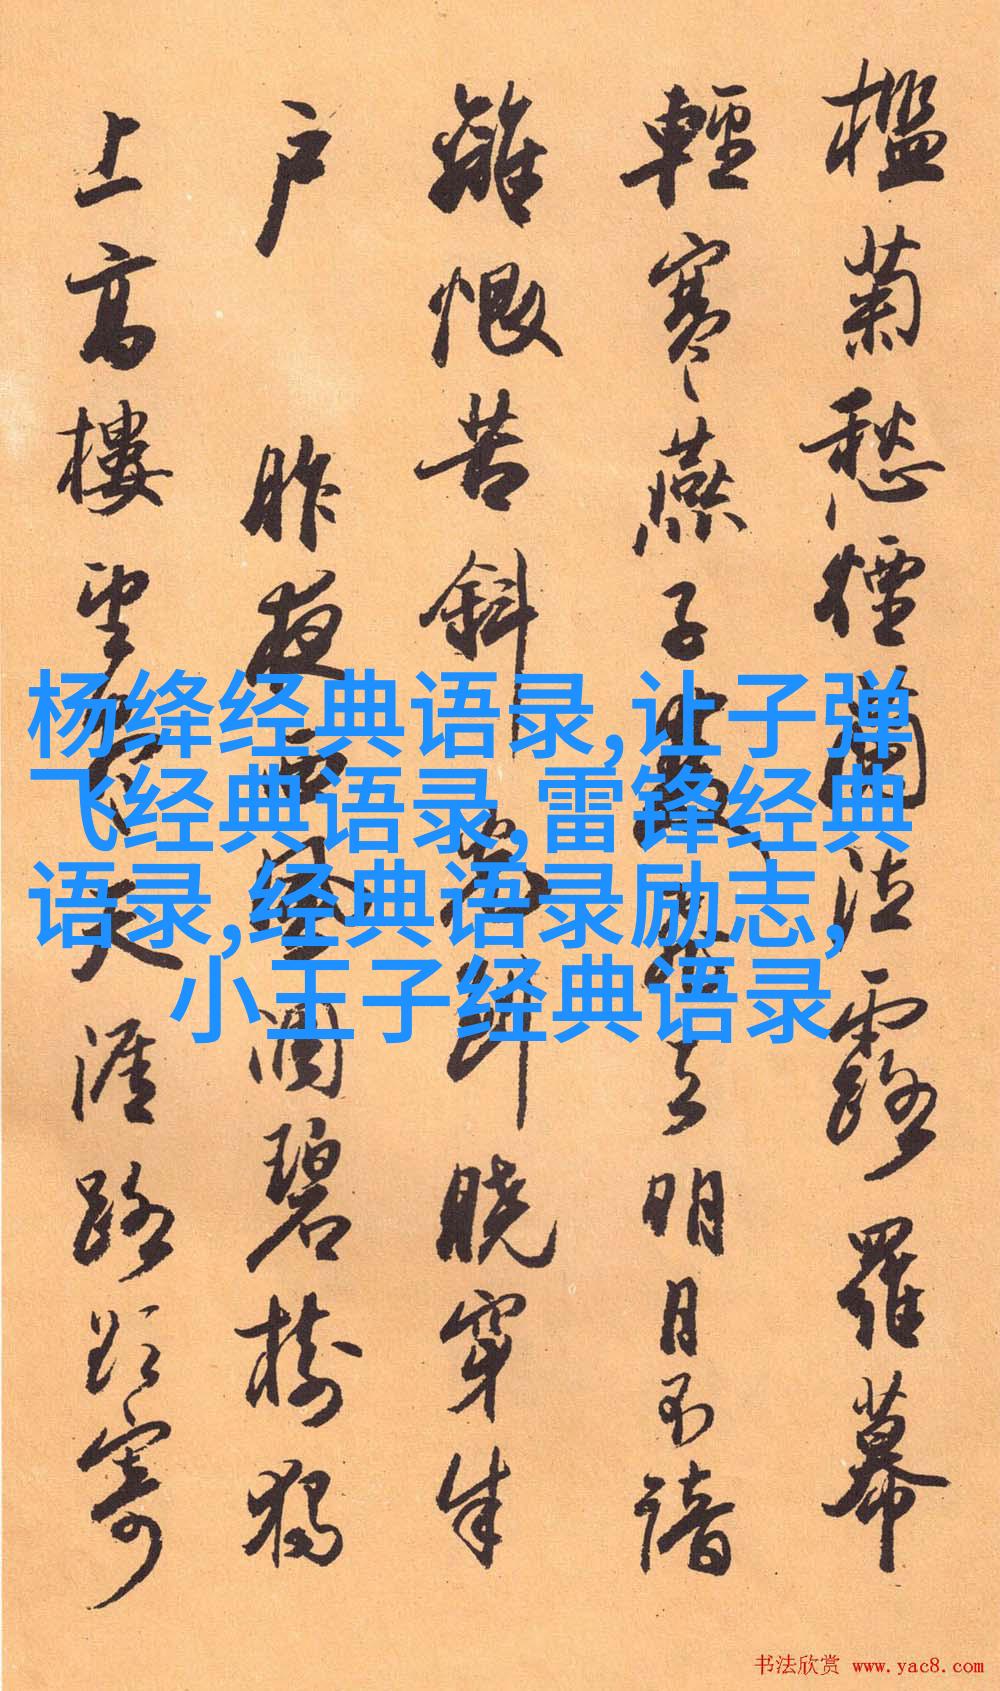 檻菊愁煙蘭泣露羅幕
輕寒燕子雙飛去明月不諳
離恨苦斜光到曉穿朱
户 昨夜西風凋碧樹獨
上高樓望盡天涯路欲寄
杨绛经典语录,让子弹
飞经典语录,雷锋经典
语录,经典语录励志,
小王子经典语录
书法欣赏 www.yac8.com